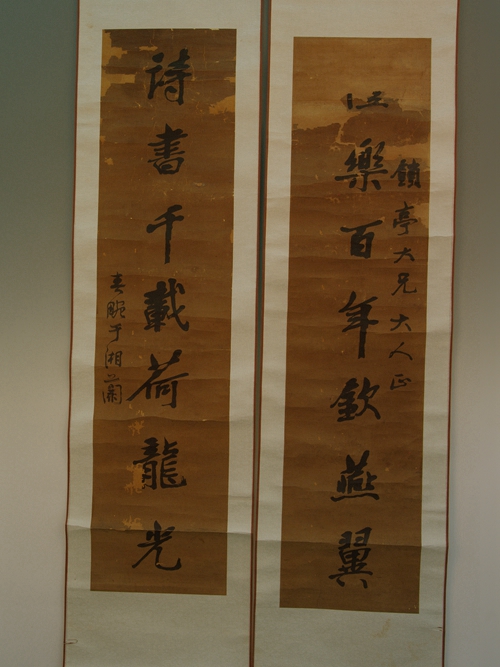 鎖亭大兄大人正
樂百年欽燕翼
詩書千載荷龍光
于湘蘭